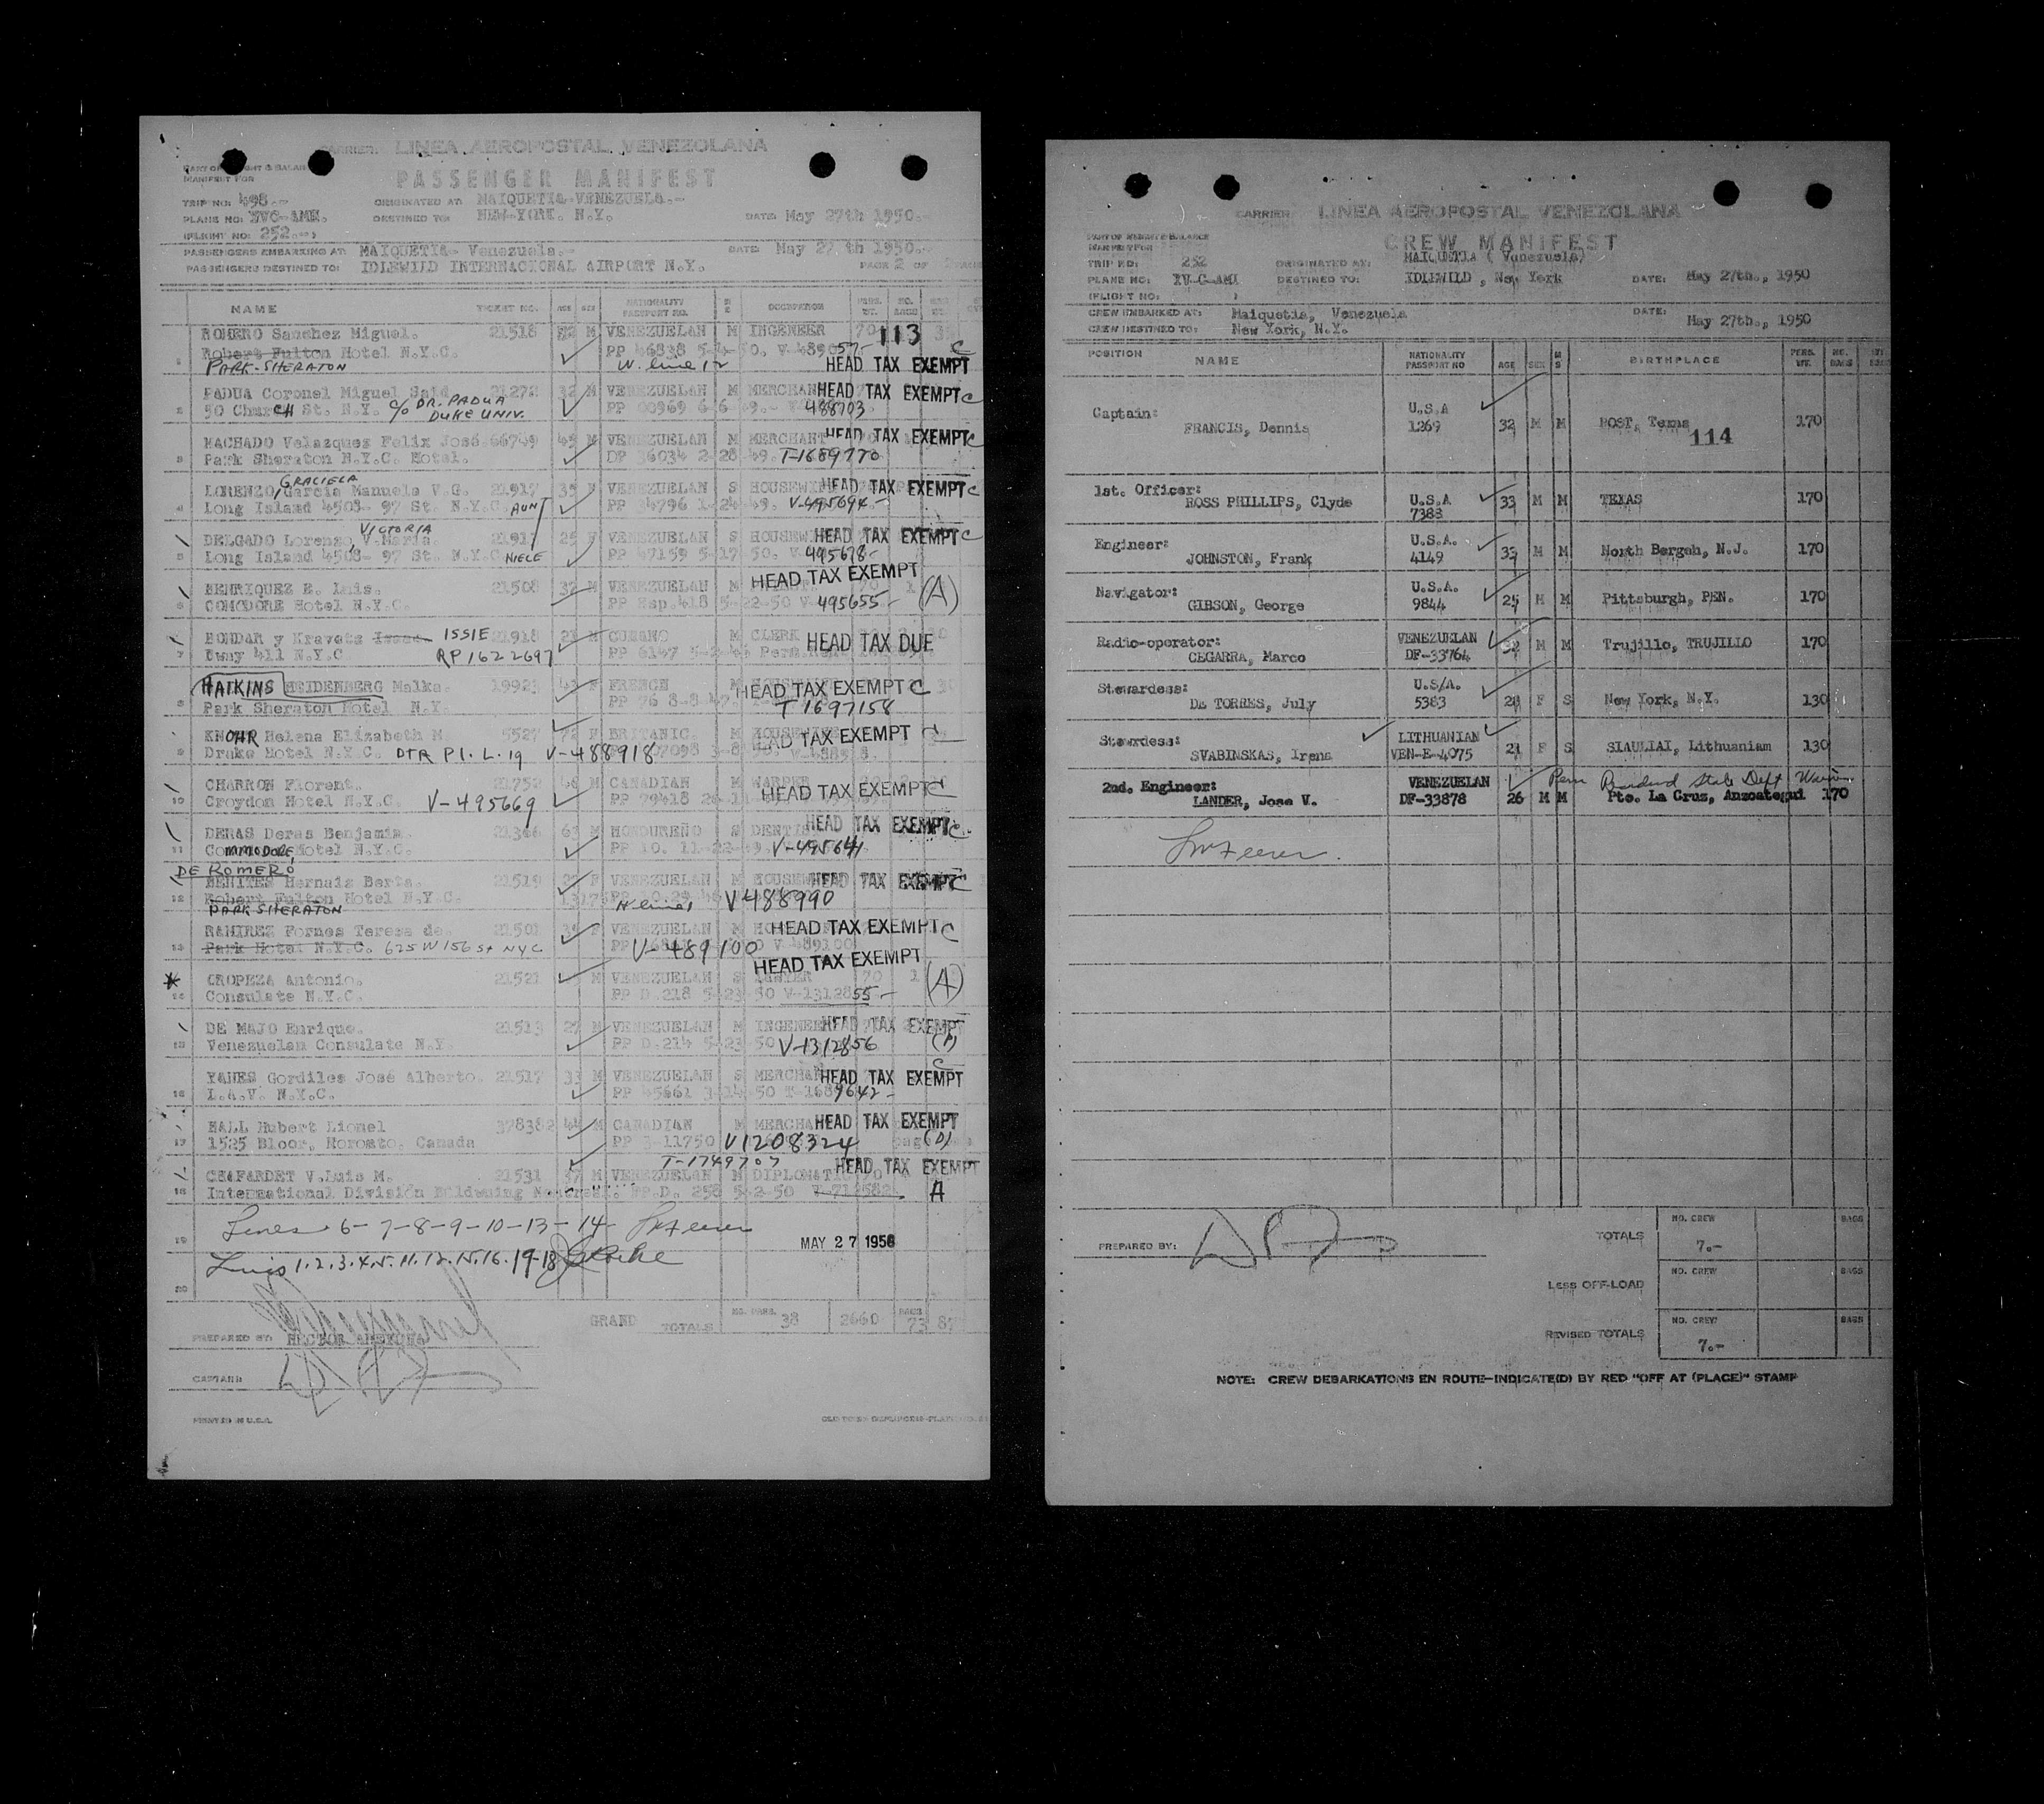 CARRIER: LINEA AEROPOSTAL VENEZOLANA
PASSENGER MANIFEST
MANIFEST FOR
TRIP NO: 498.- ORIGINATED AT: MAIQUETIA-VENEZUELA.-
PLANE NO: YVC-AMH. DESTINED TO: NEW-YORK. N.Y. DATE: May 27th 1950.-
(FLIGHT NO: 252.-)
PASSENGERS EMBARKING AT: MAIQUETIA- Venezuela.- DATE: May 27 th 1950.-
PASSENGERS DESTINED TO: IDLEWILD INTERNACIONAL AIRPORT N.Y. PAGE 2 OF
NAME TICKET NO. AGE SEX NATIONALITY PASSPORT NO. OCCUPATION PERS. WT. NO. BAGS
113
ROMERO Sanchez Miguel. 21518 M VENEZUELAN M INGENEER 70
Robert Fulton Hotel N.Y.C. PP 46838 5-4-50. V-489057- C
1 PARK-SHERATON W. line 12 HEAD TAX EXEMPT
PADUA Coronel Miguel Said 21272 32 M VENEZUELAN M MERCHAN HEAD TAX EXEMPT C
2 50 Church St. N.Y. C/O DR. PADUA DUKE UNIV. PP 00969 6-6 49.- 488703.
MACHADO Velazques Felix José 66749 45 M VENEZUELAN M MERCHANT HEAD TAX EXEMPT C
3 Park Sheraton N.Y.C. Hotel. DP 36034 2-28 49. T-1689770
GRACIELA
LORENZO, Garcia Manuela V.G. 21917 35 F VENEZUELAN S HOUSEWIFE HEAD TAX EXEMPT C
4 Long Island 4508- 97 St. N.Y.C AUNT PP 34796 1-24 49. V-495694-
VICTORIA
DELGADO Lorenzo, V.Maria. 2191 25 F VENEZUELAN S HOUSEWI HEAD TAX EXEMPT C
5 Long Island 4508- 97 St. N.Y.C NIECE PP 47159 5-17 50. V-495678-
HENRIQUEZ E. Luis. 21508 32 M VENEZUELAN M HEAD TAX EXEMPT
6 COMODORE Hotel N.Y.C. PP Esp.418 5-22-50 V-495655- (A)
BONDAR y Kravetz ISSIE 21918 21 M CUBANO M CLERK HEAD TAX DUE
7 Bway 411 N.Y.C RP 1622697 PP 6147 5-2-4
HAIKINS HEIDENBERG Malka. 19923 43 F FRENCH M HEAD TAX EXEMPT C
8 Park Sheraton Hotel N.Y. PP 76 8-8-47. T 1697158
KNOHR Helena Elizabeth M. 5527 72 F BRITANIC. M HOUSEWIFE HEAD TAX EXEMPT C
9 Drake Hotel N.Y.C. DTR P1. L. 19 V-488918
CHARRON Florent. 21752 48 M CANADIAN M WARPER HEAD TAX EXEMPT C
10 Croydon Hotel N.Y.C. V-495669 PP 79418
DERAS Deras Benjamin. 21366 63 M HONDUREÑO S DENTIS HEAD TAX EXEMPT C.
11 COMMODORE, Hotel N.Y.C. PP 10. 11-22-49. V-495641
DE ROMERO
BENITES Hernaiz Berta. 21519 F VENEZUELAN M HOUSEW HEAD TAX EXEMPT C
12 Robert Fulton Hotel N.Y.C. W line 1 V488990
PARK SHERATON
RAMIREZ Fornes Teresa de. 21501 F VENEZUELAN M HEAD TAX EXEMPT C
13 Park Hotel N.Y.C. 625 W 156 St NYC V-489100
OROPEZA Antonio. 21521 M VENEZUELAN S LAWYER 70 1 HEAD TAX EXEMPT
14 Consulate N.Y.C. PP D.218 5-23-50 V-1312855- (A)
DE MAJO Enrique. 21513 27 M VENEZUELAN M INGENEER HEAD TAX EXEMPT
15 Venezuelan Consulate N.Y. PP D.214 5-23-50 V-1312856 (A)
YANES Gordiles José Alberto. 21517 33 M VENEZUELAN S MERCHAN HEAD TAX EXEMPT C
16 L.A.V. N.Y.C. PP 45661 3-14-50 T-1689642-
HALL Hubert Lionel 378382 44 M CANADIAN M MERCHA HEAD TAX EXEMPT
17 1525 Bloor, Noromto, Canada PP 3-11750 V1208324 (D)
T-1749707
CHAFARDET V.Luis M. 21531 37 M VENEZUELAN M DIPLOMATIC HEAD TAX EXEMPT
18 International División PP.D. 258 5-2-50 V-712582. A
19 Lines 6-7-8-9-10-13-14-
MAY 27 1950
1.2.3.4.5.11.12.15.16.17-18
20
GRAND TOTALS NO. PASS. 38 2660 BAGS 73 87
PREPARED BY: HECTOR
CAPTAIN:
PRINTED IN U.S.A.
CARRIER: LINEA AEROPOSTAL VENEZOLANA
CREW MANIFEST
PART OF WEIGHT & BALANCE
MANIFEST FOR
TRIP NO: 252 ORIGINATED AT: MAIQUETIA (Vanezuela)
PLANE NO: YV-C-AMI DESTINED TO: IDLEWILD, New York DATE: May 27th., 1950
(FLIGHT NO: )
CREW EMBARKED AT: Maiquetia, Venezuela DATE: May 27th., 1950
CREW DESTINED TO: New York, N.Y.
POSITION NAME NATIONALITY PASSPORT NO AGE SEX M S BIRTHPLACE PERS. WT. NO. BAGS
Captain: U.S.A
FRANCIS, Dennis 1269 32 M M POST, Texas 170
114
1st. Officer: U.S.A
ROSS PHILLIPS, Clyde 7388 33 M M TEXAS 170
Engineer: U.S.A.
JOHNSTON, Frank 4149 33 M M North Bergeh, N.J. 170
Navigator: U.S.A.
GIBSON, George 9844 25 M M Pittsburgh, PEN. 170
Radio-operator: VENEZUELAN
CEGARRA, Marco DF-33764 32 M M Trujillo, TRUJILLO 170
Stewardess: U.S/A.
DE TORRES, July 5383 28 F S New York, N.Y. 130
Stewrdess: LITHUANIAN
SVABINSKAS, Irena VEN-E-4075 21 F S SIAULIAI, Lithuaniam 130
2nd. Engineer: VENEZUELAN State Dept
LANDER, Jose V. DF-33878 26 M M Pto. La Cruz, Anzoategui 170
PREPARED BY:
TOTALS NO. CREW 7.- BAGS
LESS OFF-LOAD NO. CREW BAGS
REVISED TOTALS NO. CREW 7.- BAGS
NOTE: CREW DEBARKATIONS EN ROUTE-INDICATE(D) BY RED "OFF AT (PLACE)" STAMP